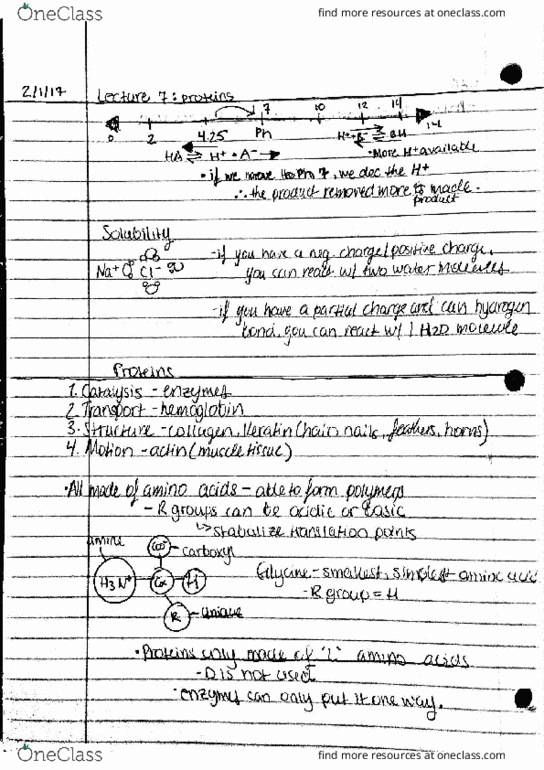 OneClass
find more resources at oneclass.com
2/1/17
Lecture 7: proteins
7
10
12
14
0
2
4.25
Ph
14
HA ⇌ H+ + A- →
• More H+ available
• if we move to Ph 7, we dec the H+
∴ the product removed more to made.
product
Solubility
- if you have a neg charge/positive charge,
Na+ Cl-
you can react w/ two water molecules
- if you have a partial charge and can hydrogen
bond, you can react w/ 1 H2O molecule
Proteins
1. Catalysis - enzymes
2. Transport - hemoglobin
3. Structure - collagen, keratin (hair, nails, feathers, horns)
4. Motion - actin (muscle tissue)
• All made of amino acids - able to form polymers
- R groups can be acidic or basic
↳ stabulize translation points
amine
COO-
- carboxyl
H3N+
Cα
H
Glycine - smallest, simplest amino acid
- R group = H
R
- unique
• Proteins only made of 'L' amino acids
- D is not used
• enzymes can only put it one way.
OneClass
find more resources at oneclass.com